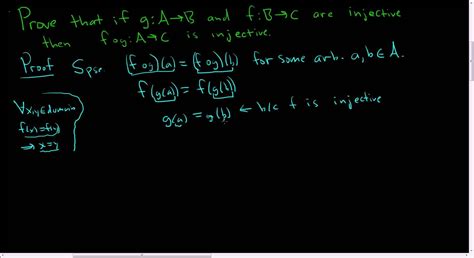 Prove that if g:A→B and f:B→C are injective
then f∘g:A→C is injective.
Proof Spse. (f∘g)(a)=(f∘g)(b) for some arb. a,b∈A.
f(g(a))=f(g(b))
g(a)=g(b) ← b/c f is injective
∀x,y∈domain
f(x)=f(y)
⇒ x=y